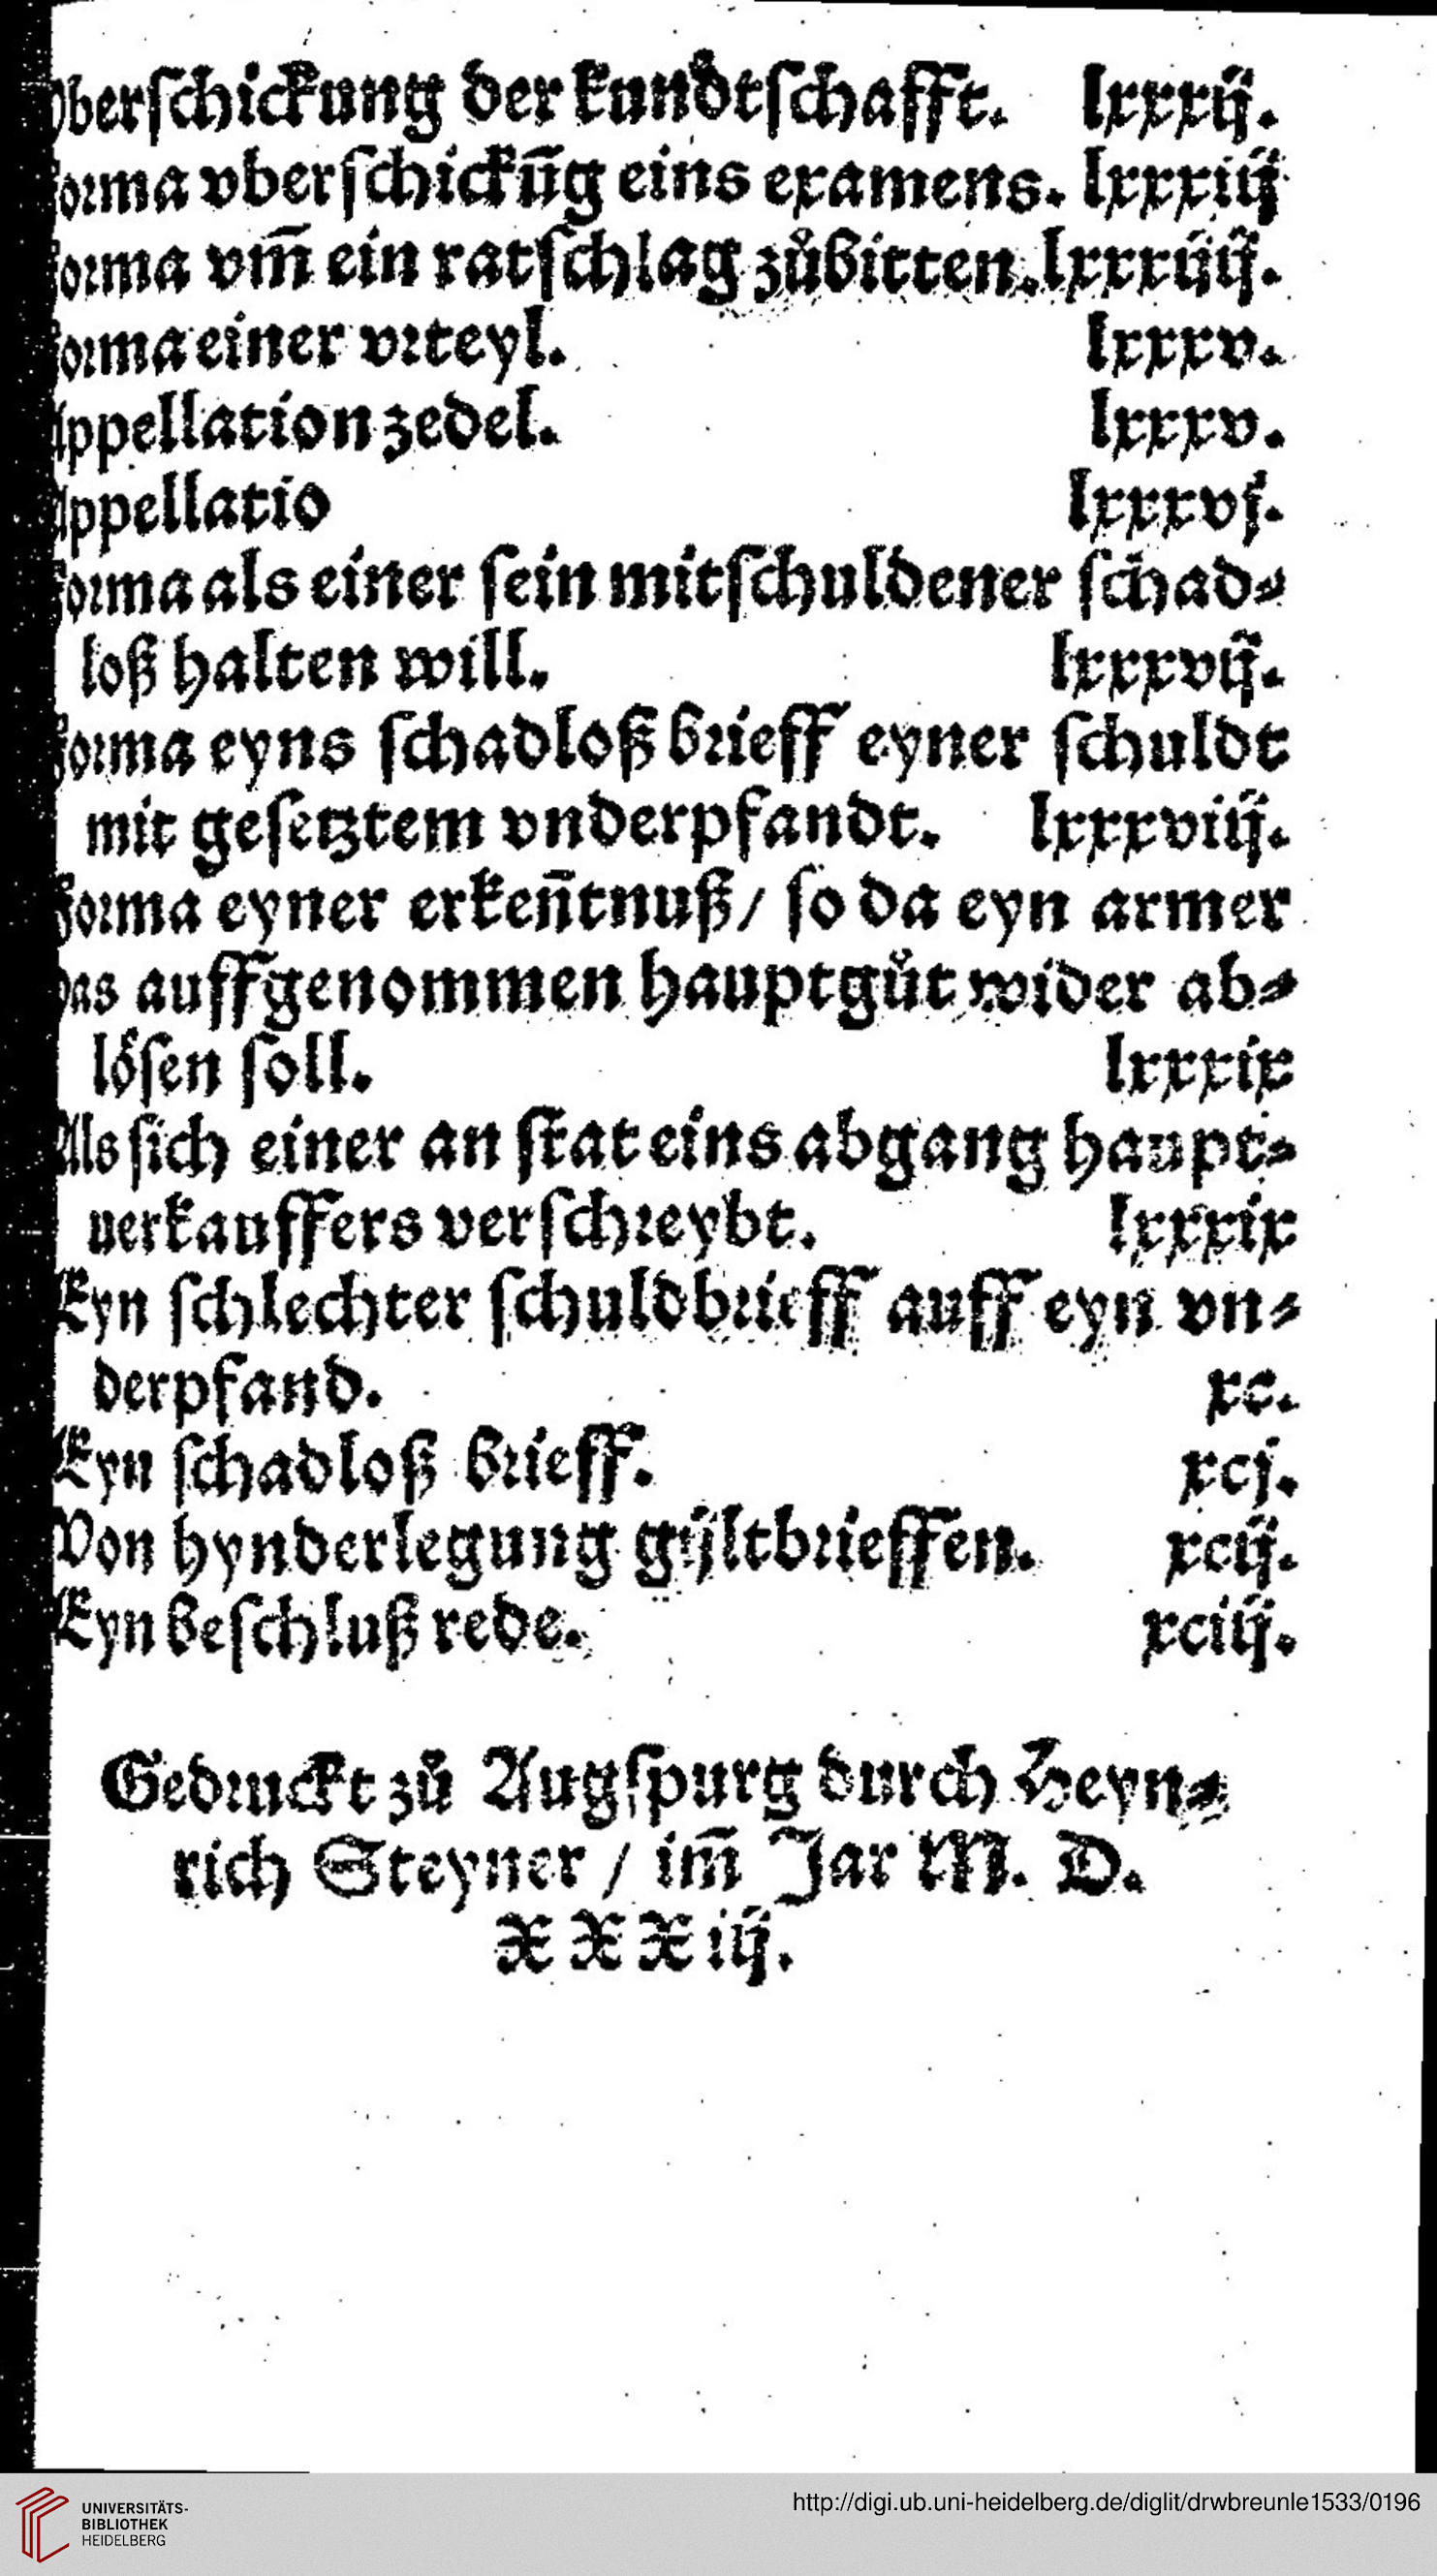 vberſchickung der kundtſchafft. lxxxij.
Forma vberſchickūg eins examens. lxxxiij
Forma vm̄ ein ratſchlag zůbitten. lxxxiiij.
Forma einer vrteyl. lxxxv.
Appellation zedel. lxxxv.
Appellatio lxxxvj.
Forma als einer ſein mitſchuldener ſchad⸗
loß halten will. lxxxvij.
Forma eyns ſchadloß brieff eyner ſchuldt
mit geſetztem vnderpfandt. lxxxviij.
Forma eyner erken̄tnuß/ ſo da eyn armer
das auffgenommen hauptgůt wider ab⸗
loͤſen ſoll. lxxxix
Als ſich einer an ſtat eins abgang haupt⸗
uerkauffers verſchreybt. lxxxix
Eyn ſchlechter ſchuldbrieff auff eyn vn⸗
derpfand. xc.
Eyn ſchadloß brieff. xcj.
Von hynderlegung gÿltbrieffen. xcij.
Eyn beſchluß rede. xciij.
Gedruckt zů Augſpurg durch Heyn⸗
rich Steyner / im̄ Jar M. D.
XXXiij.
UNIVERSITÄTS-
BIBLIOTHEK
HEIDELBERG
http://digi.ub.uni-heidelberg.de/diglit/drwbreunle1533/0196